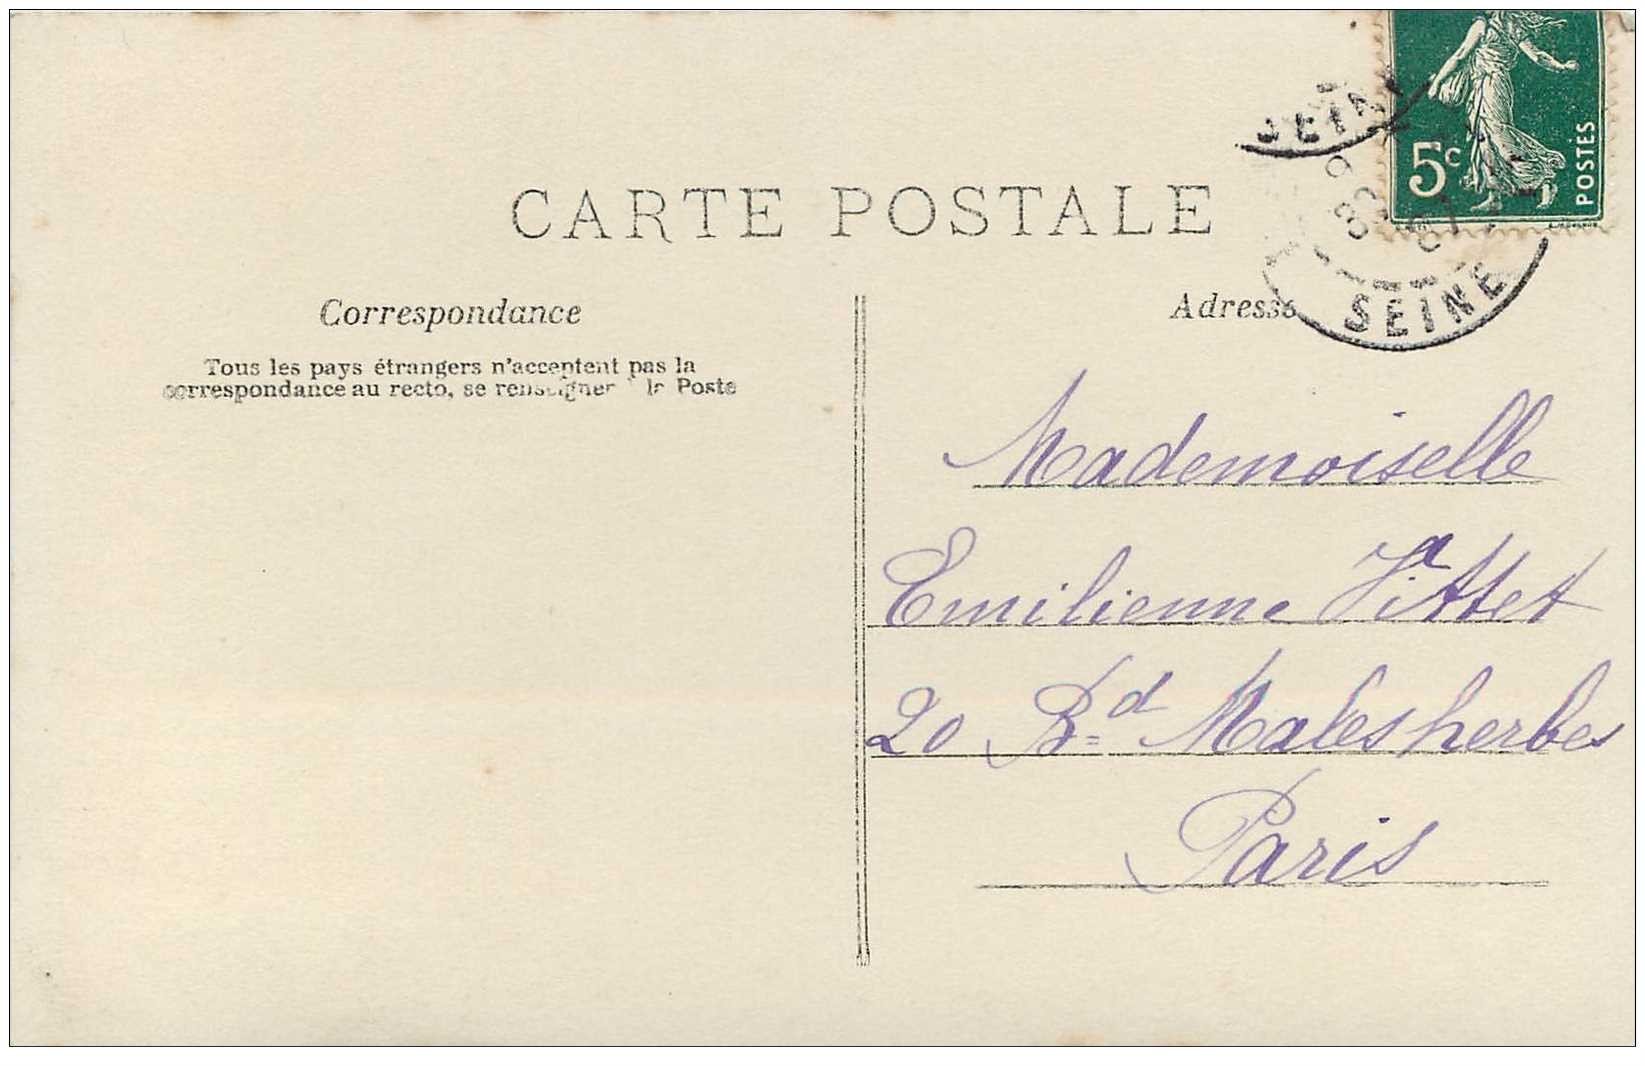 5c
POSTES
SEINE
SEINE
CARTE POSTALE
Correspondance
Adresse
Tous les pays étrangers n'acceptent pas la
correspondance au recto, se renseigner à la Poste
Mademoiselle
Emilienne
20 Bd Malesherbes
Paris